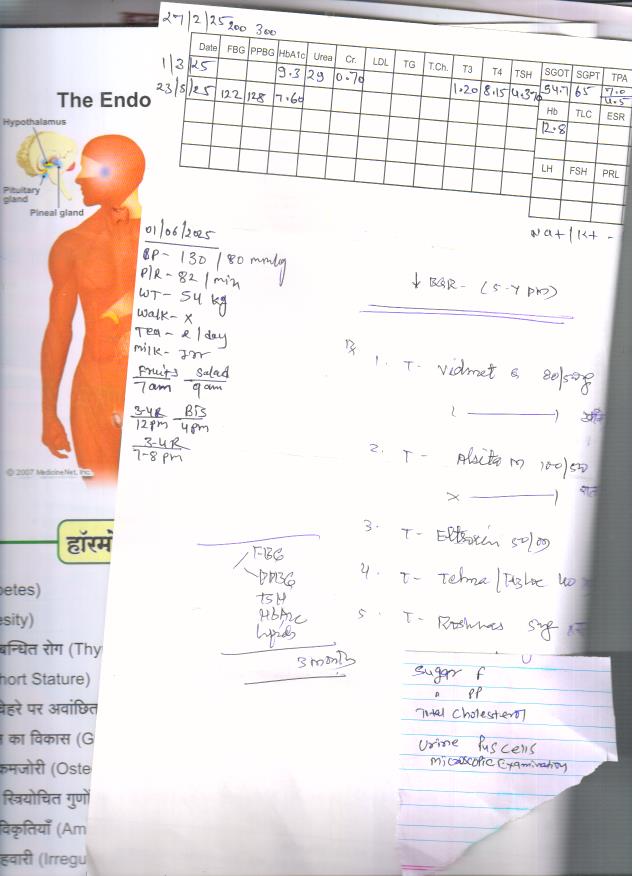 27/2/25 200 300
Date FBG PPBG HbA1c Urea Cr. LDL TG T.Ch. T3 T4 TSH SGOT SGPT TPA
1/3/25 9.3 29 0.70 54.7 65 7.0
23/5/25 122 128 7.60 1.20 8.15 4.370 4.5
Hb TLC ESR
12.8
LH FSH PRL
Na+ / K+ -
The Endo
Hypothalamus
Pituitary
gland
Pineal gland
© 2007 MedicineNet, Inc.
हॉरमो
betes)
esity)
बन्धित रोग (Thy
hort Stature)
चेहरे पर अवांछित
का विकास (G
कमजोरी (Oste
स्त्रियोचित गुणों
विकृतियाँ (Am
हवारी (Irregu
01/06/2025
BP- 130/80 mmHg
P/R- 82/min
WT- 54 kg
Walk- x
Tea- 2/day
Milk-
Fruits Salad
7am 9am
3-4R BTS
12pm 4pm
3-4R
7-8 pm
FBG
PPBG
TSH
HbA1c
lipids
3 months
Rx
1. T- 
2. T- 100/500
x
3. T- Eltroxin 50
4. T- Telma 40
5. T- 5mg
Sugar F
" PP
Total Cholesterol
Urine Pus cells
Microscopic Examination